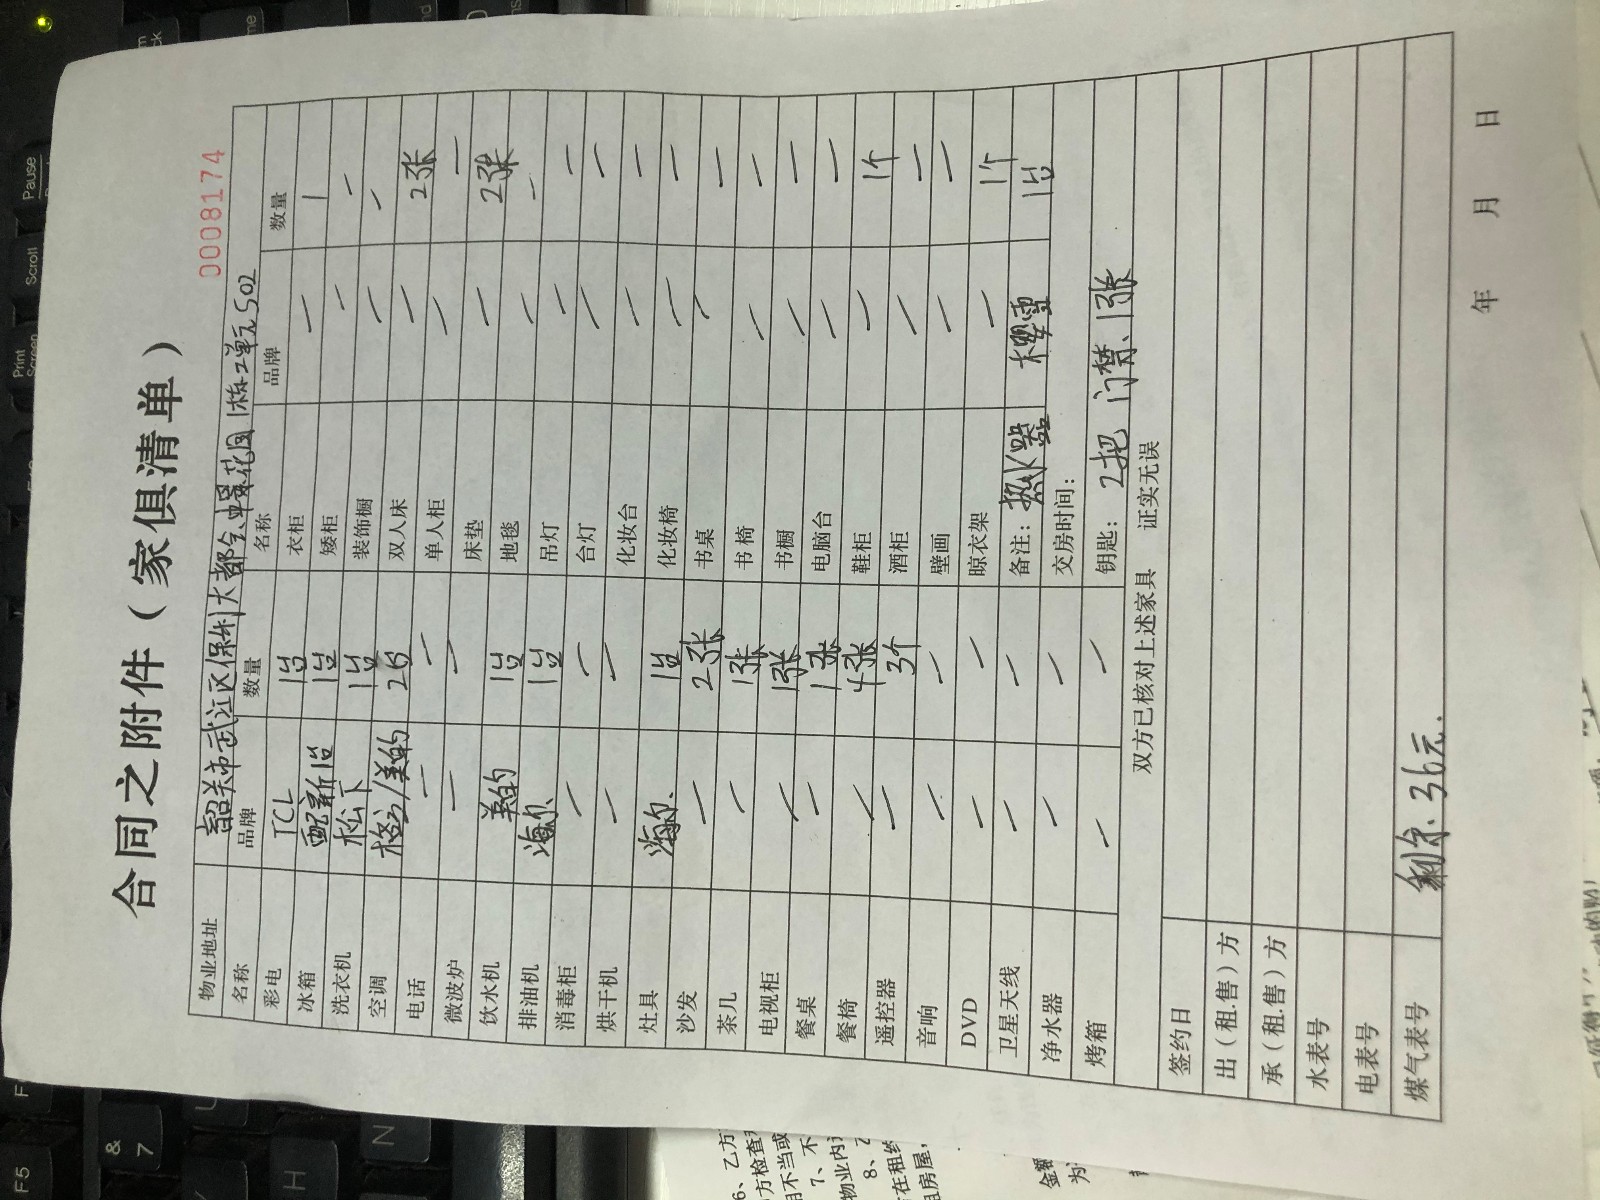 合同之附件（家俱清单）
0008174
物业地址 韶关市武江区保利大都会中景花园1栋2单元502
名称 品牌 数量 名称 品牌 数量
彩电 TCL 1台 衣柜 — 1
冰箱 1台 矮柜 — —
洗衣机 松下 1台 装饰橱 — —
空调 格力/美的 2台 双人床 — 2张
电话 — — 单人柜 — —
微波炉 — — 床垫 — 2张
饮水机 美的 1台 地毯 — —
排油机 海尔 1台 吊灯 — —
消毒柜 — — 台灯 — —
烘干机 — — 化妆台 — —
灶具 海尔 1台 化妆椅 — —
沙发 — 2张 书桌 — —
茶几 — 1张 书椅 — —
电视柜 — 1张 书橱 — —
餐桌 — 1张 电脑台 — —
餐椅 — 4张 鞋柜 — 1个
遥控器 — 3个 酒柜 — —
音响 — — 壁画 — —
DVD — — 晾衣架 — 1个
卫星天线 — — 备注：热水器 樱雪 1台
净水器 — — 交房时间：
烤箱 — — 钥匙： 2把 门禁、1张
双方已核对上述家具 证实无误
签约日
出（租.售）方
承（租.售）方
水表号
电表号
煤气表号 剩余.36元.
年 月 日
Print
Screen
Scroll
Pause
F5
&
7
H
N
6、乙方
方检查
用不当或
7、不
物业内
8、
在租
租房屋，
金
为